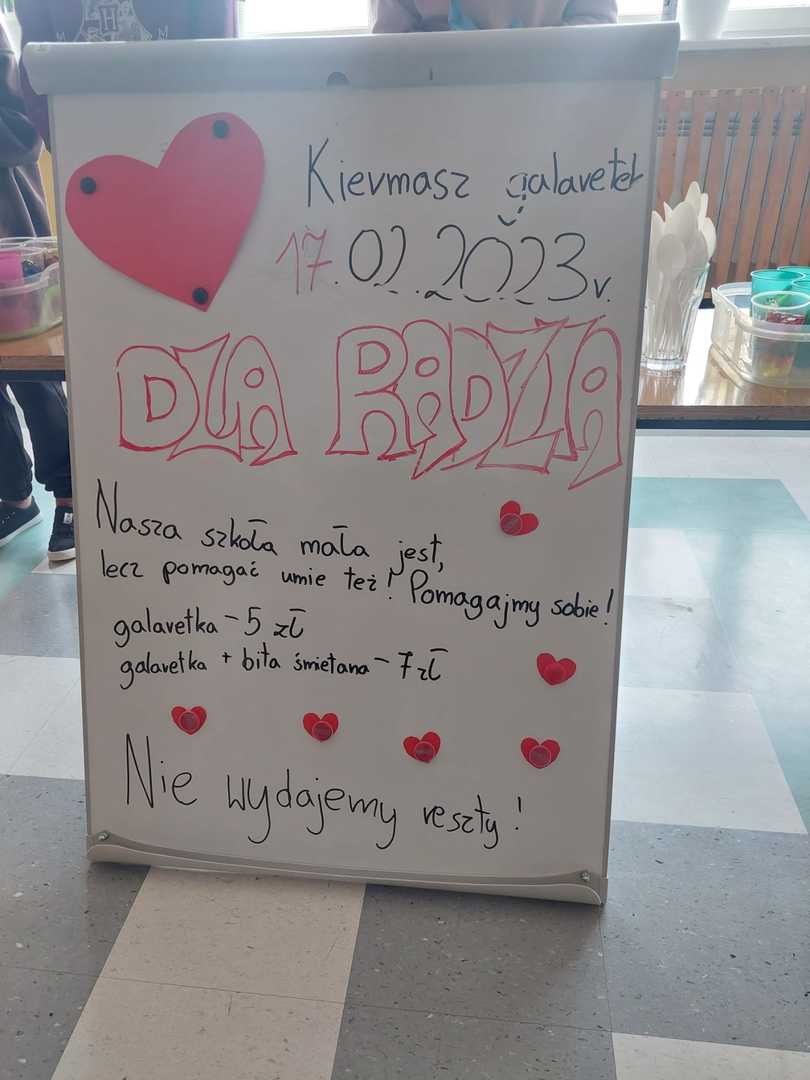 Kiermasz galaretek
17.02.2023r.
DLA RADZIA
Nasza szkoła mała jest,
lecz pomagać umie też! Pomagajmy sobie!
galaretka - 5 zł
galaretka + bita śmietana - 7 zł
Nie wydajemy reszty!